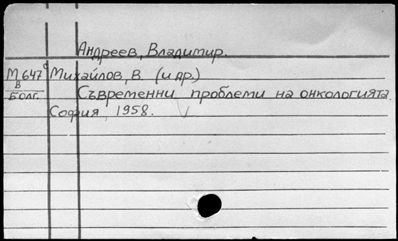 Андреев, Владимир.
М647 Михайлов, В. (и др.)
В
Болг. Съвременни проблеми на онкологията.
София, 1958.